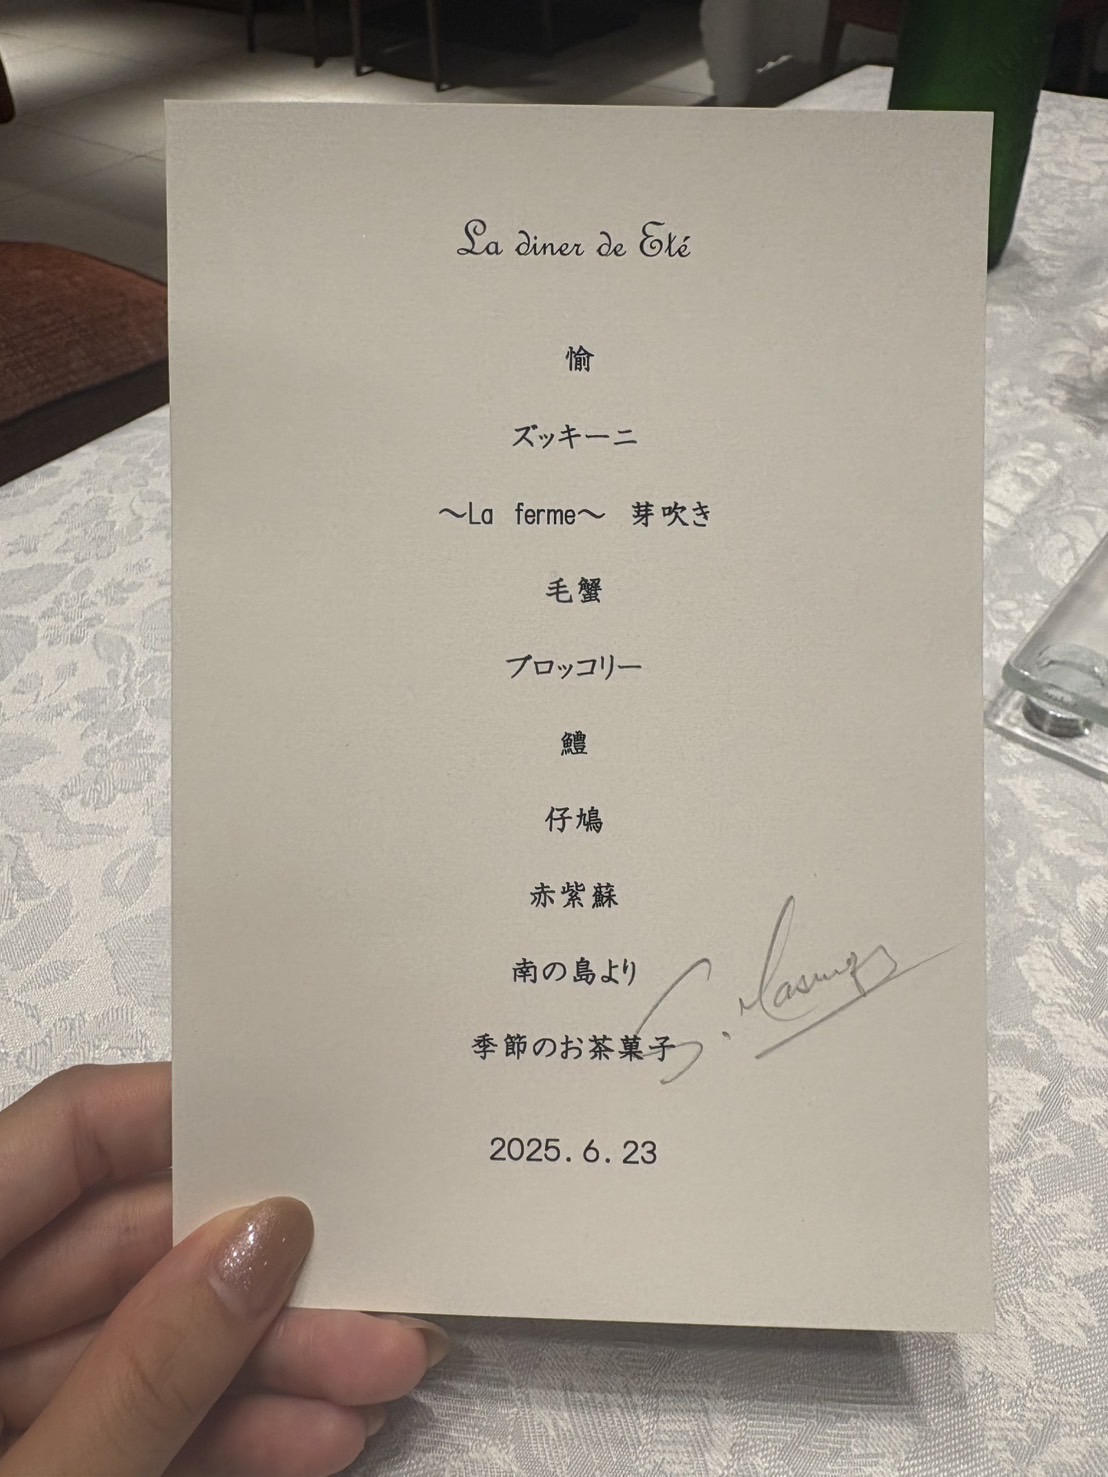 La diner de Eté
愉
ズッキーニ
～La ferme～ 芽吹き
毛蟹
ブロッコリー
鱧
仔鳩
赤紫蘇
南の島より
季節のお茶菓子
2025.6.23